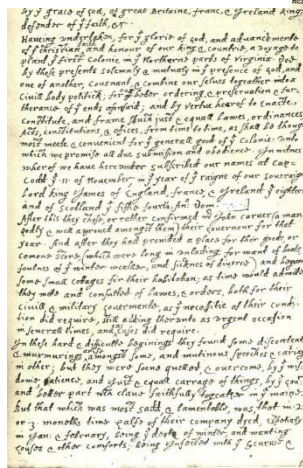 by yᵉ grace of God, of great Britaine, franc, & Ireland king,
defender of yᵉ faith, &c
Haveing undertaken, for yᵉ glorie of God, and advancemente
of yᵉ christian and honour of our king & countrie, a voyage to
plant yᵉ first colonie in yᵉ Northerne parts of Virginia. Doe
by these presents solemnly & mutualy in yᵉ presence of God, and
one of another, covenant, & combine our selves togeather into a
civill body politick; for yᵉ better ordering, & preservation & fur-
therance of yᵉ ends aforesaid; and by vertue hearof to enacte,
constitute, and frame such just & equall lawes, ordinances,
Acts, constitutions, & offices, from time to time, as shall be thought
most meete & convenient for yᵉ generall good of yᵉ colonie: unto
which we promise all due submission and obedience. In witnes
wherof we have hereunder subscribed our names at Cap-
Codd yᵉ ·11· of November, in yᵉ year of yᵉ raigne of our soveraigne
Lord king James of England, france, & Ireland yᵉ eighteenth
and of Scotland yᵉ fiftie fourth. Ano: Dom
After this they chose, or rather confirmed mʳ John Carver (a man
godly & well approved amongst them) their governour for that
year. And after they had provided a place for their goods, or
comone store, (which were long in unlading for want of boats,
foulnes of yᵉ winter weather, and sicknes of diverce) and begune
some small cottages for their habitation; as time would admitte
they mette and consulted of lawes, & orders, both for their
civill & military govermente, as yᵉ necessitie of their condi-
tion did require, still adding therunto as urgent occasion
in severall times, and as cases did require.
In these hard & difficulte beginings they found some discontents
& murmurings amongst some, and mutinous speeches & carriags
in other; but they were soone quelled, & overcome, by yᵉ wis-
dome, patience, and just & equall carrage of things, by yᵉ gov
and better part wᶜʰ clave faithfully togeather in yᵉ maine.
but that which was most sadd, & lamentable, was, that in 2
or 3 moneths time halfe of their company dyed, espetialy
in Jan: & february, being yᵉ depth of winter, and wanting
houses & other comforts; being Infected with yᵉ scurvie &